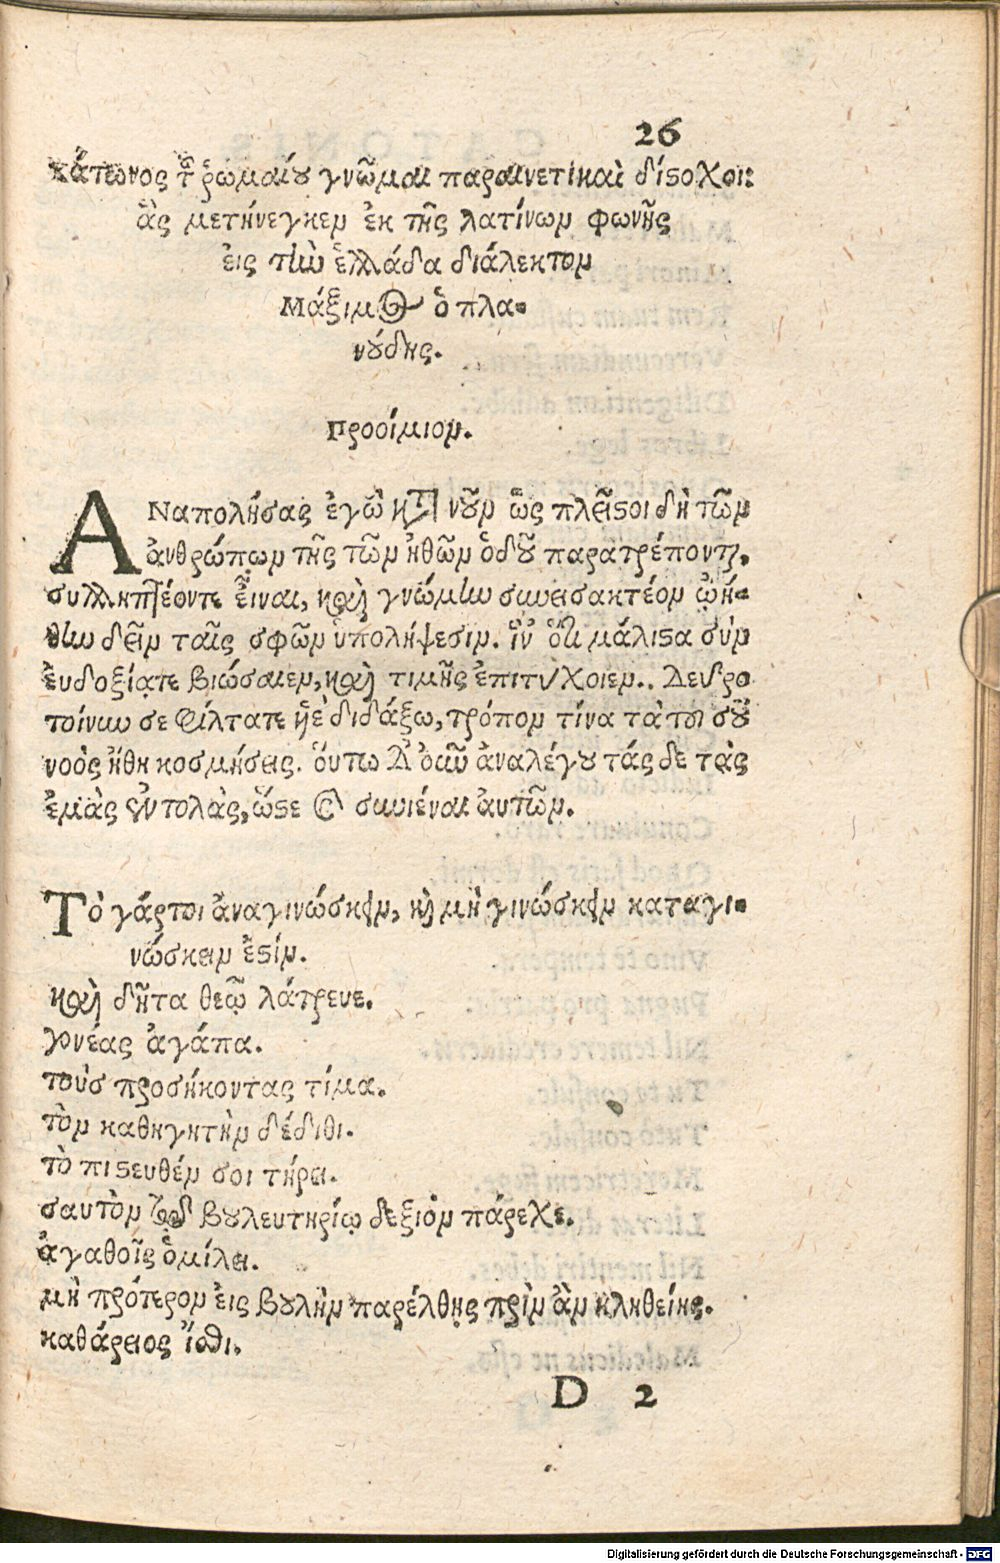 26
κάτωνος τοῦ ῥωμαίου γνῶμαι παραινετικαὶ δίστιχοι:
ἃς μετήνεγκεν ἐκ τῆς λατίνων φωνῆς
εἰς τὴν ἑλλάδα διάλεκτον
Μάξιμος ὁ πλα-
νούδης.
Προοίμιον.
ΑΝαπολήσας ἐγὼ κατὰ νοῦν ὡς πλεῖστοι δὴ τῶν
ἀνθρώπων τῆς τῶν ἠθῶν ὁδοῦ παρατρέπονται,
συλληπτέον τε εἶναι, καὶ γνώμην συνεισακτέον ᾠή-
θην δεῖν ταῖς σφῶν ὑπολήψεσιν. ἵν' ὅτι μάλιστα σὺν
εὐδοξίᾳ τε βιώσαιεν, καὶ τιμῆς ἐπιτύχοιεν.. Δεῦρο
τοίνυν σε φίλτατε διδάξω, τρόπον τίνα τὰ τοῦ σοῦ
νοὸς ἤθη κοσμήσεις. οὕτω δ' οὖν ἀναλέγου τάς δε τὰς
ἐμὰς ἐντολὰς, ὥστε καὶ συνιέναι αὐτῶν.
Τὸ γάρ τοι ἀναγινώσκειν, καὶ μὴ γινώσκειν καταγι-
νώσκειν ἐστίν.
καὶ δῆτα θεῷ λάτρευε.
γονέας ἀγάπα.
τοὺς προσήκοντας τίμα.
τὸν καθηγητὴν δέδιθι.
τὸ πιστευθέν σοι τήρει.
σαυτὸν τῷ βουλευτηρίῳ δεξιὸν πάρεχε.
ἀγαθοῖς ὁμίλει.
μὴ πρότερον εἰς βουλὴν παρέλθῃς πρὶν ἂν κληθείης.
καθάρειος ἴσθι.
D 2
Digitalisierung gefördert durch die Deutsche Forschungsgemeinschaft - DFG